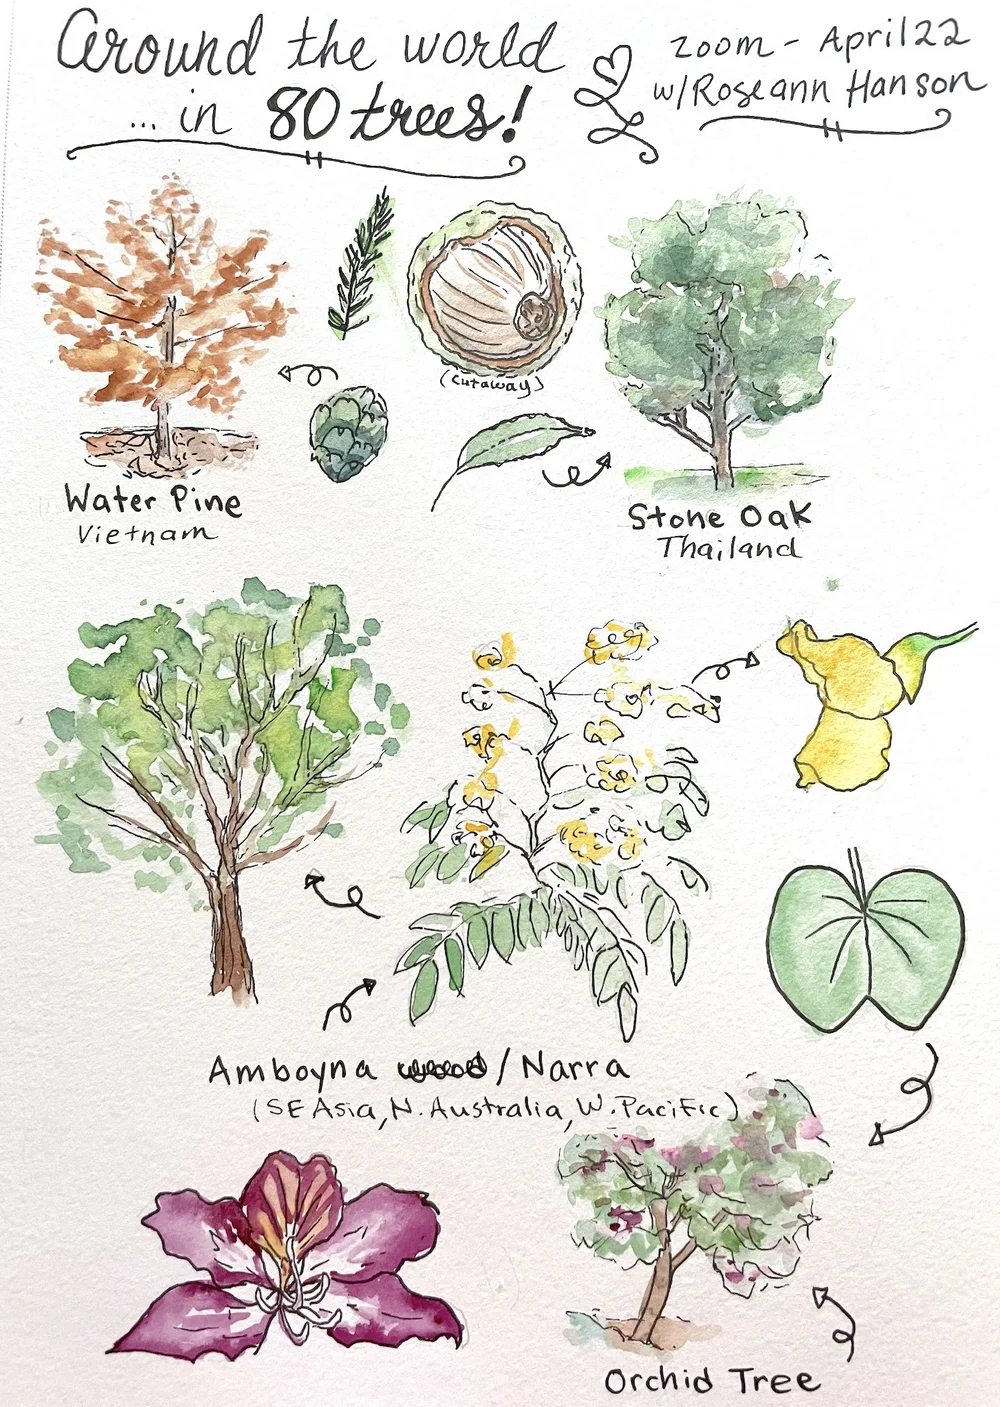 Around the world
... in 80 trees!
zoom - April 22
w/Roseann Hanson
(cutaway)
Water Pine
Vietnam
Stone Oak
Thailand
Amboyna / Narra
(SE Asia, N. Australia, W. Pacific)
Orchid Tree